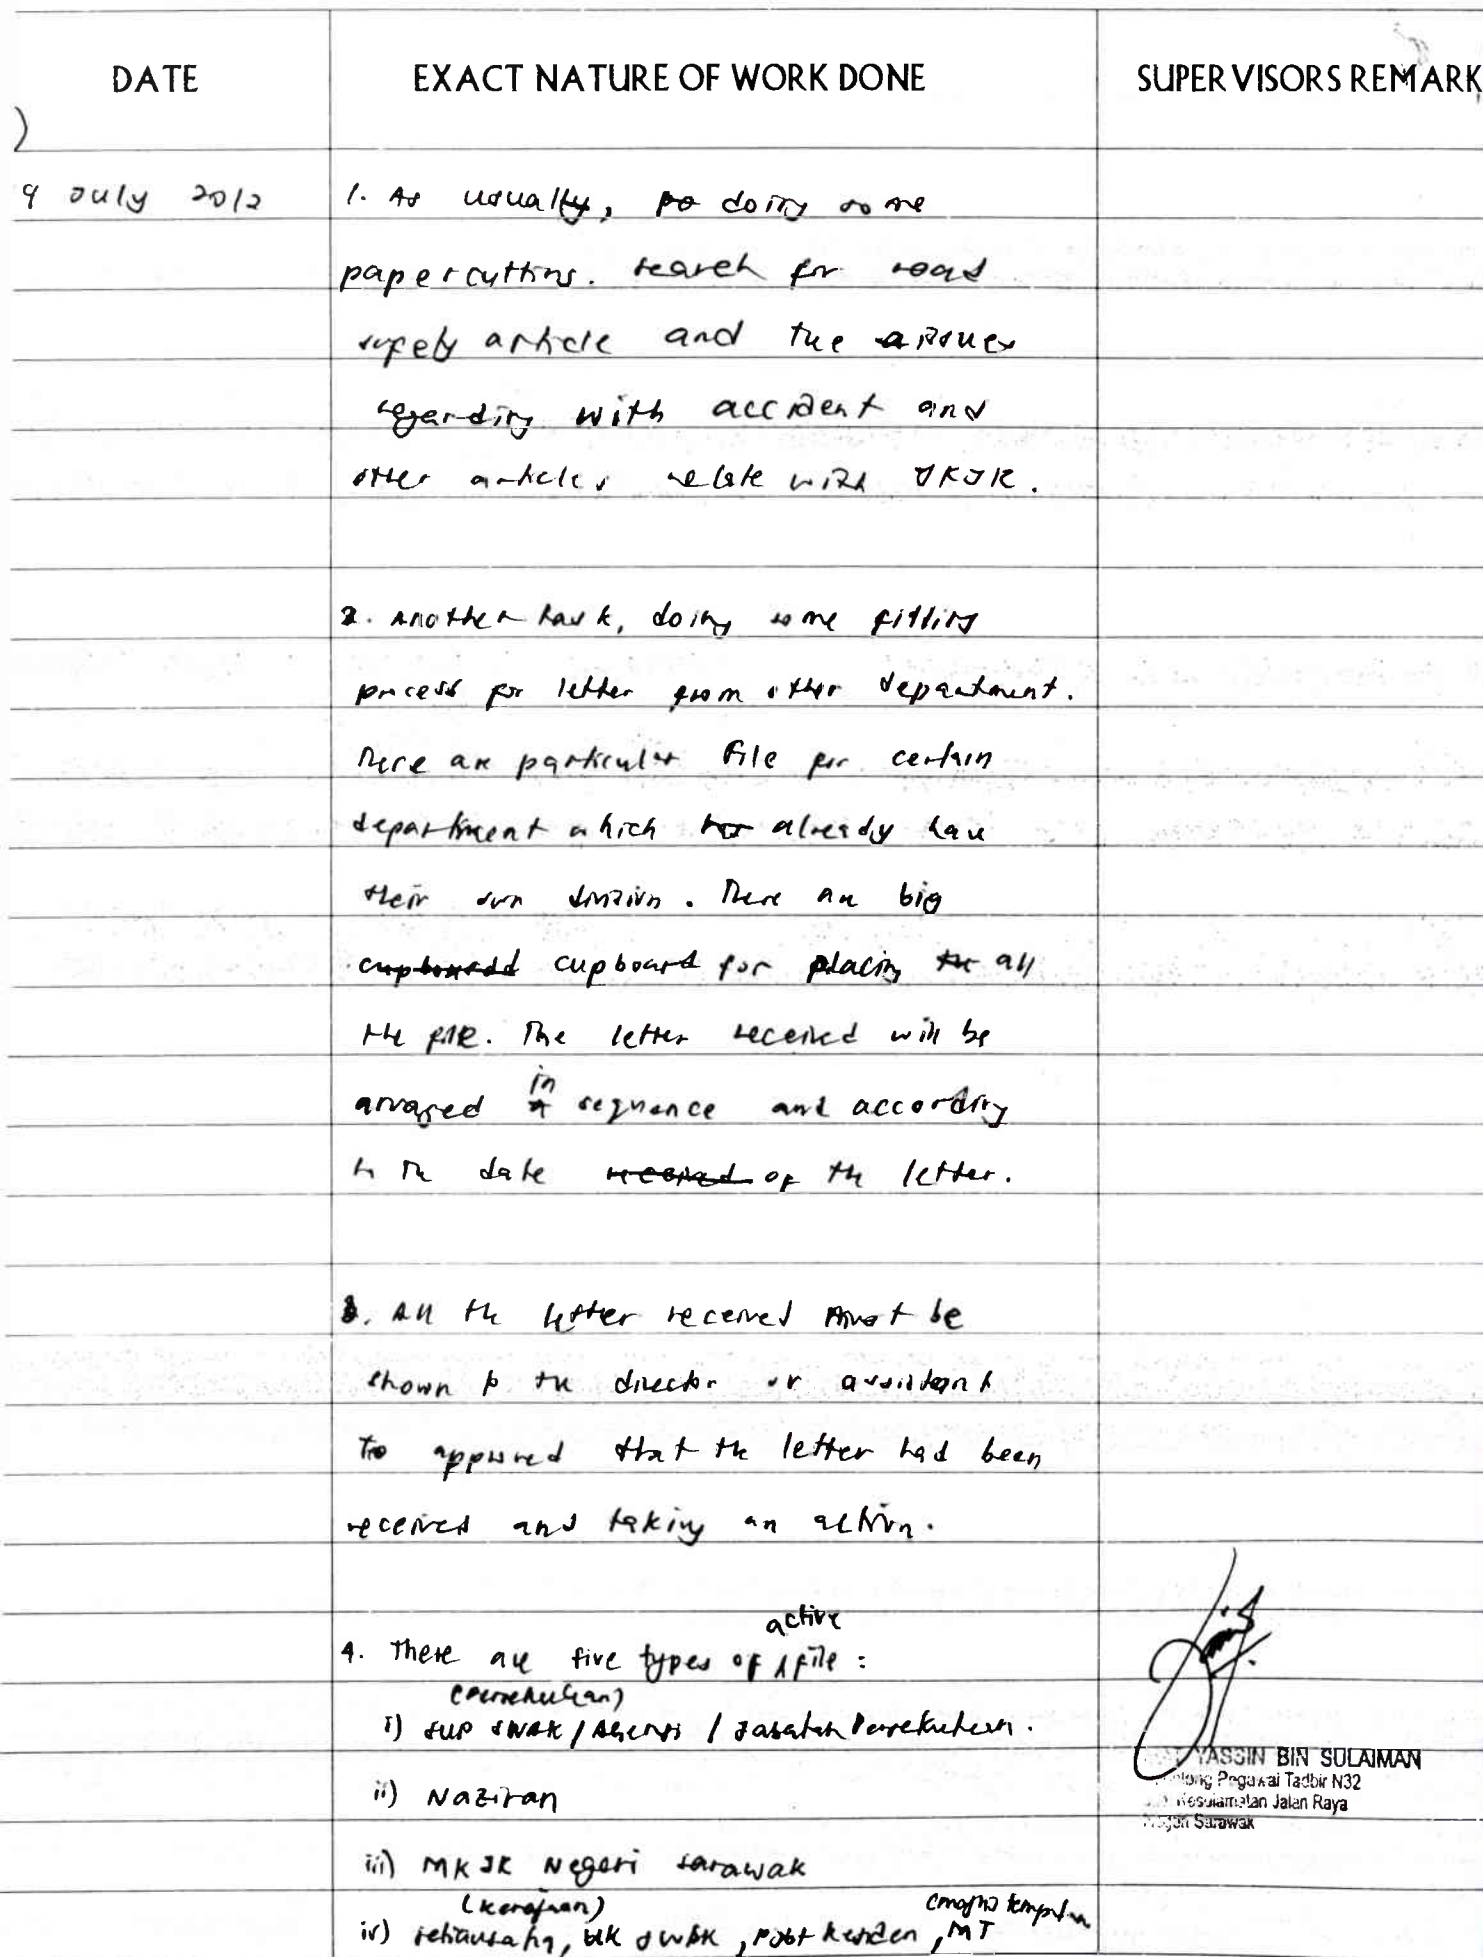 DATE EXACT NATURE OF WORK DONE SUPERVISORS REMARK
)
9 July 2012 1. As usually, doing some
papercutting. search for road
safety article and the issues
regarding with accident and
other articles relate with JKJR.
2. Another task, doing some filling
process for letter from other department.
There are particular file for certain
department which already have
their own division. There are big
cupboard for placing all
the file. The letter received will be
arranged in sequence and according
to the date of the letter.
3. All the letter received must be
shown to the director or assistant
to approved that the letter had been
received and taking an action.
active
4. There are five types of file :
(Persekutuan)
i) SUP SWAK / Agensi / Jabatan Persekutuan.
ii) Naziran
iii) MKJR Negeri Sarawak
(Kerajaan)
iv) setiausaha, SWAK , MT
YASSIN BIN SULAIMAN
Pegawai Tadbir N32
Keselamatan Jalan Raya
Sarawak